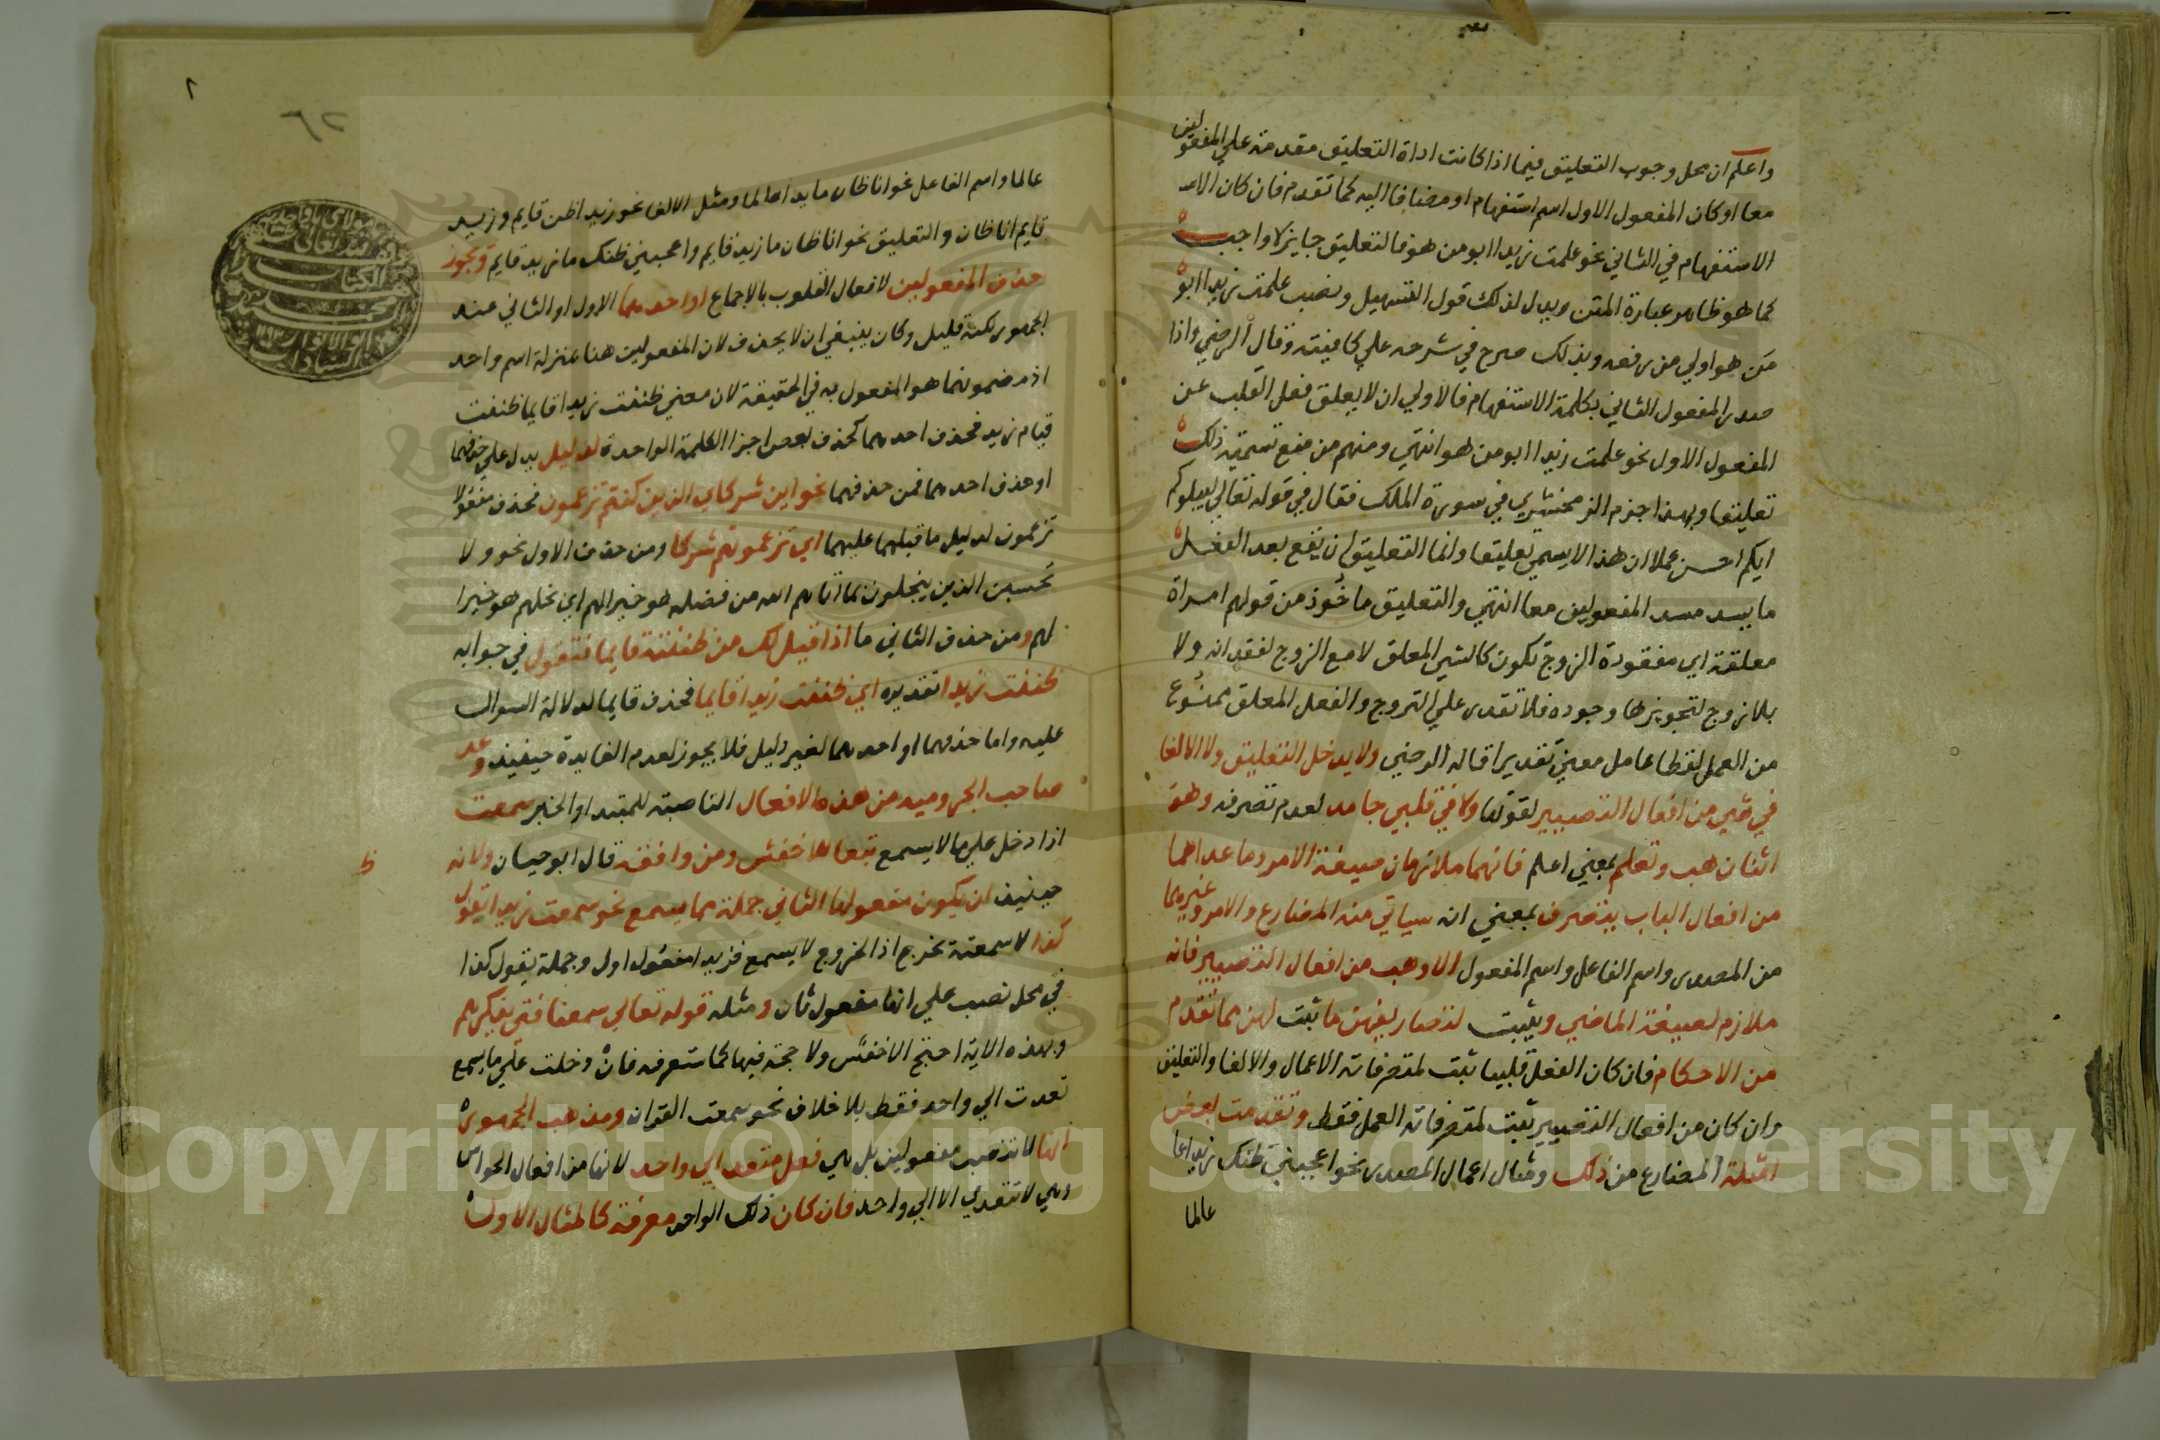 واعلم ان محل وجوب التعليق فيما اذا كانت اداة التعليق مقدمة علي المفعولين
معا او كان المفعول الاول اسم استفهام او مضافا اليه كما تقدم فان كان الاسم
الاستفهام في الثاني نحو علمت زيدا ابو من هو فالتعليق جايز لا واجب
كما هو ظاهر عبارة المتن ويدل لذلك قول التسهيل ونصب علمت زيدا ابو
من هو اولي من رفعه وبذلك صرح في شرحه علي كافيته وقال الرضي واذا
صدر المفعول الثاني بكلمة الاستفهام فالاولي ان لا يعلق فعل القلب عن
المفعول الاول نحو علمت زيدا ابو من هو انتهي ومنهم من منع تسمية ذلك
تعليقا وبهذا جزم الزمخشري في سورة الملك فقال في قوله تعالي ليبلوكم
ايكم احسن عملا ان هذا لا يسمي تعليقا وانما التعليق ان يقع بعد الفعل
ما يسد مسد المفعولين معا انتهي والتعليق ماخوذ من قولهم امراة
معلقة اي مفقودة الزوج تكون كالشي المعلق لا مع الزوج لفقدانه ولا
بلا زوج لتجويزها وجوده فلا تقدر علي التزوج والفعل المعلق ممنوع
من العمل لفظا عامل معني تقديرا قاله الرضي ولا يدخل التعليق ولا الالغا
في شي من افعال التصيير لقوتها ولا في قلبي جامد لعدم تصرفه وهو
اثنان هب وتعلم بمعني اعلم فانهما ملازمان صيغة الامر وما عداهما
من افعال الباب يتصرف بمعني انه سياتي منه المضارع والامر وغيرهما
من المصدر واسم الفاعل واسم المفعول الا وهب من افعال التصيير فانه
ملازم لصيغة الماضي ويثبت لتصاريفهن ما ثبت لهن مما تقدم
من الاحكام فان كان الفعل قلبيا ثبت لمتصرفاته الاعمال والالغا والتعليق
وان كان من افعال التصيير ثبت لمتصرفاته العمل فقط وتقدمت بعض
امثلة المضارع من ذلك ومثال اعمال المصدر نحو اعجبني ظنك زيدا عا
عالما
٦٢
عالما واسم الفاعل نحو انا ظان ما بدا ظالما ومثل الالغا نحو زيد اظن قايم وزيد
قايم انا ظان والتعليق نحو انا ظان ما زيد قايم واعجبني ظنك ما زيد قايم ويجوز
حذف المفعولين لافعال القلوب بالاجماع او احدهما الاول او الثاني عند
الجمهور لكنه قليل وكان ينبغي ان لا يحذف لان المفعولين هنا بمنزلة اسم واحد
اذ مضمونهما هو المفعول به في الحقيقة لان معني ظننت زيدا قايما ظننت
قيام زيد فحذف احدهما كحذف بعض اجزا الكلمة الواحدة لدليل يدل علي حذفهما
او حذف احدهما فمن حذفهما نحو اين شركاي الذين كنتم تزعمون فحذف مفعولا
تزعمون لدليل ما قبلهما عليهما اي تزعمونهم شركا ومن حذف الاول نحو ولا
تحسبن الذين يبخلون بما اتاهم الله من فضله هو خيرا لهم اي بخلهم هو خيرا
لهم ومن حذف الثاني ما اذا قيل لك من ظننته قايما فتقول في جوابه
ظننت زيدا تقديره اي ظننت زيدا قايما فحذف قايما لدلالة السوال
عليه واما حذفهما او احدهما لغير دليل فلا يجوز لعدم الفايدة حينيذ وعد
صاحب الجرومية من هذه الافعال الناصبة للمبتدا والخبر سمعت
اذا دخل علي ما لا يسمع تبعا للاخفش ومن وافقه قال ابو حيان ولا نه
حينيذ ان يكون مفعولها الثاني جملة مما يسمع نحو سمعت زيدا يقول
كذا لا سمعته يخرج اذ الخروج لا يسمع فزيدا مفعول اول وجملة يقول كذا
في محل نصب علي انها مفعول ثان ومثله قوله تعالي سمعنا فتي يذكرهم
وبهذه الاية احتج الاخفش ولا حجة فيها كما ستعرفه فان دخلت علي ما يسمع
تعدت الي واحد فقط بلا خلاف نحو سمعت القران ومذهب الجمهور
انها لا تنصب مفعولين بل هي فعل متعد الي واحد لانها من افعال الحواس
وهي لا تتعدي الا الي واحد فان كان ذلك الواحد معرفة كالمثال الاول
Copyright © King Saud University